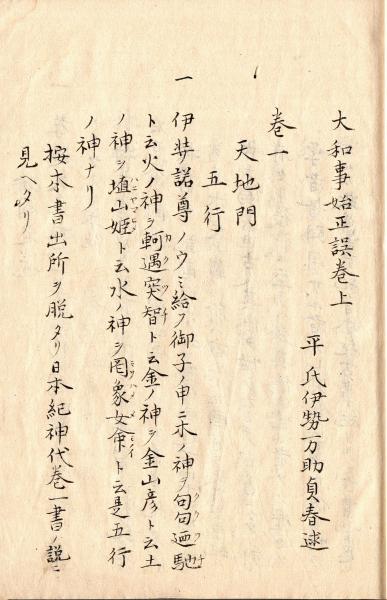 大和事始正誤巻上
平氏伊勢万助貞春述
巻一
天地門
五行
一
伊弉諾尊ノウミ給フ御子ノ中ニ木ノ神ヲ句句廼馳
ト云火ノ神ヲ軻遇突智ト云金ノ神ヲ金山彦ト云土
ノ神ヲ埴山姫ト云水ノ神ヲ罔象女命ト云是五行
ノ神ナリ
按本書出所ヲ脱タリ日本紀神代巻一書ノ説ニ
見ヘタリ